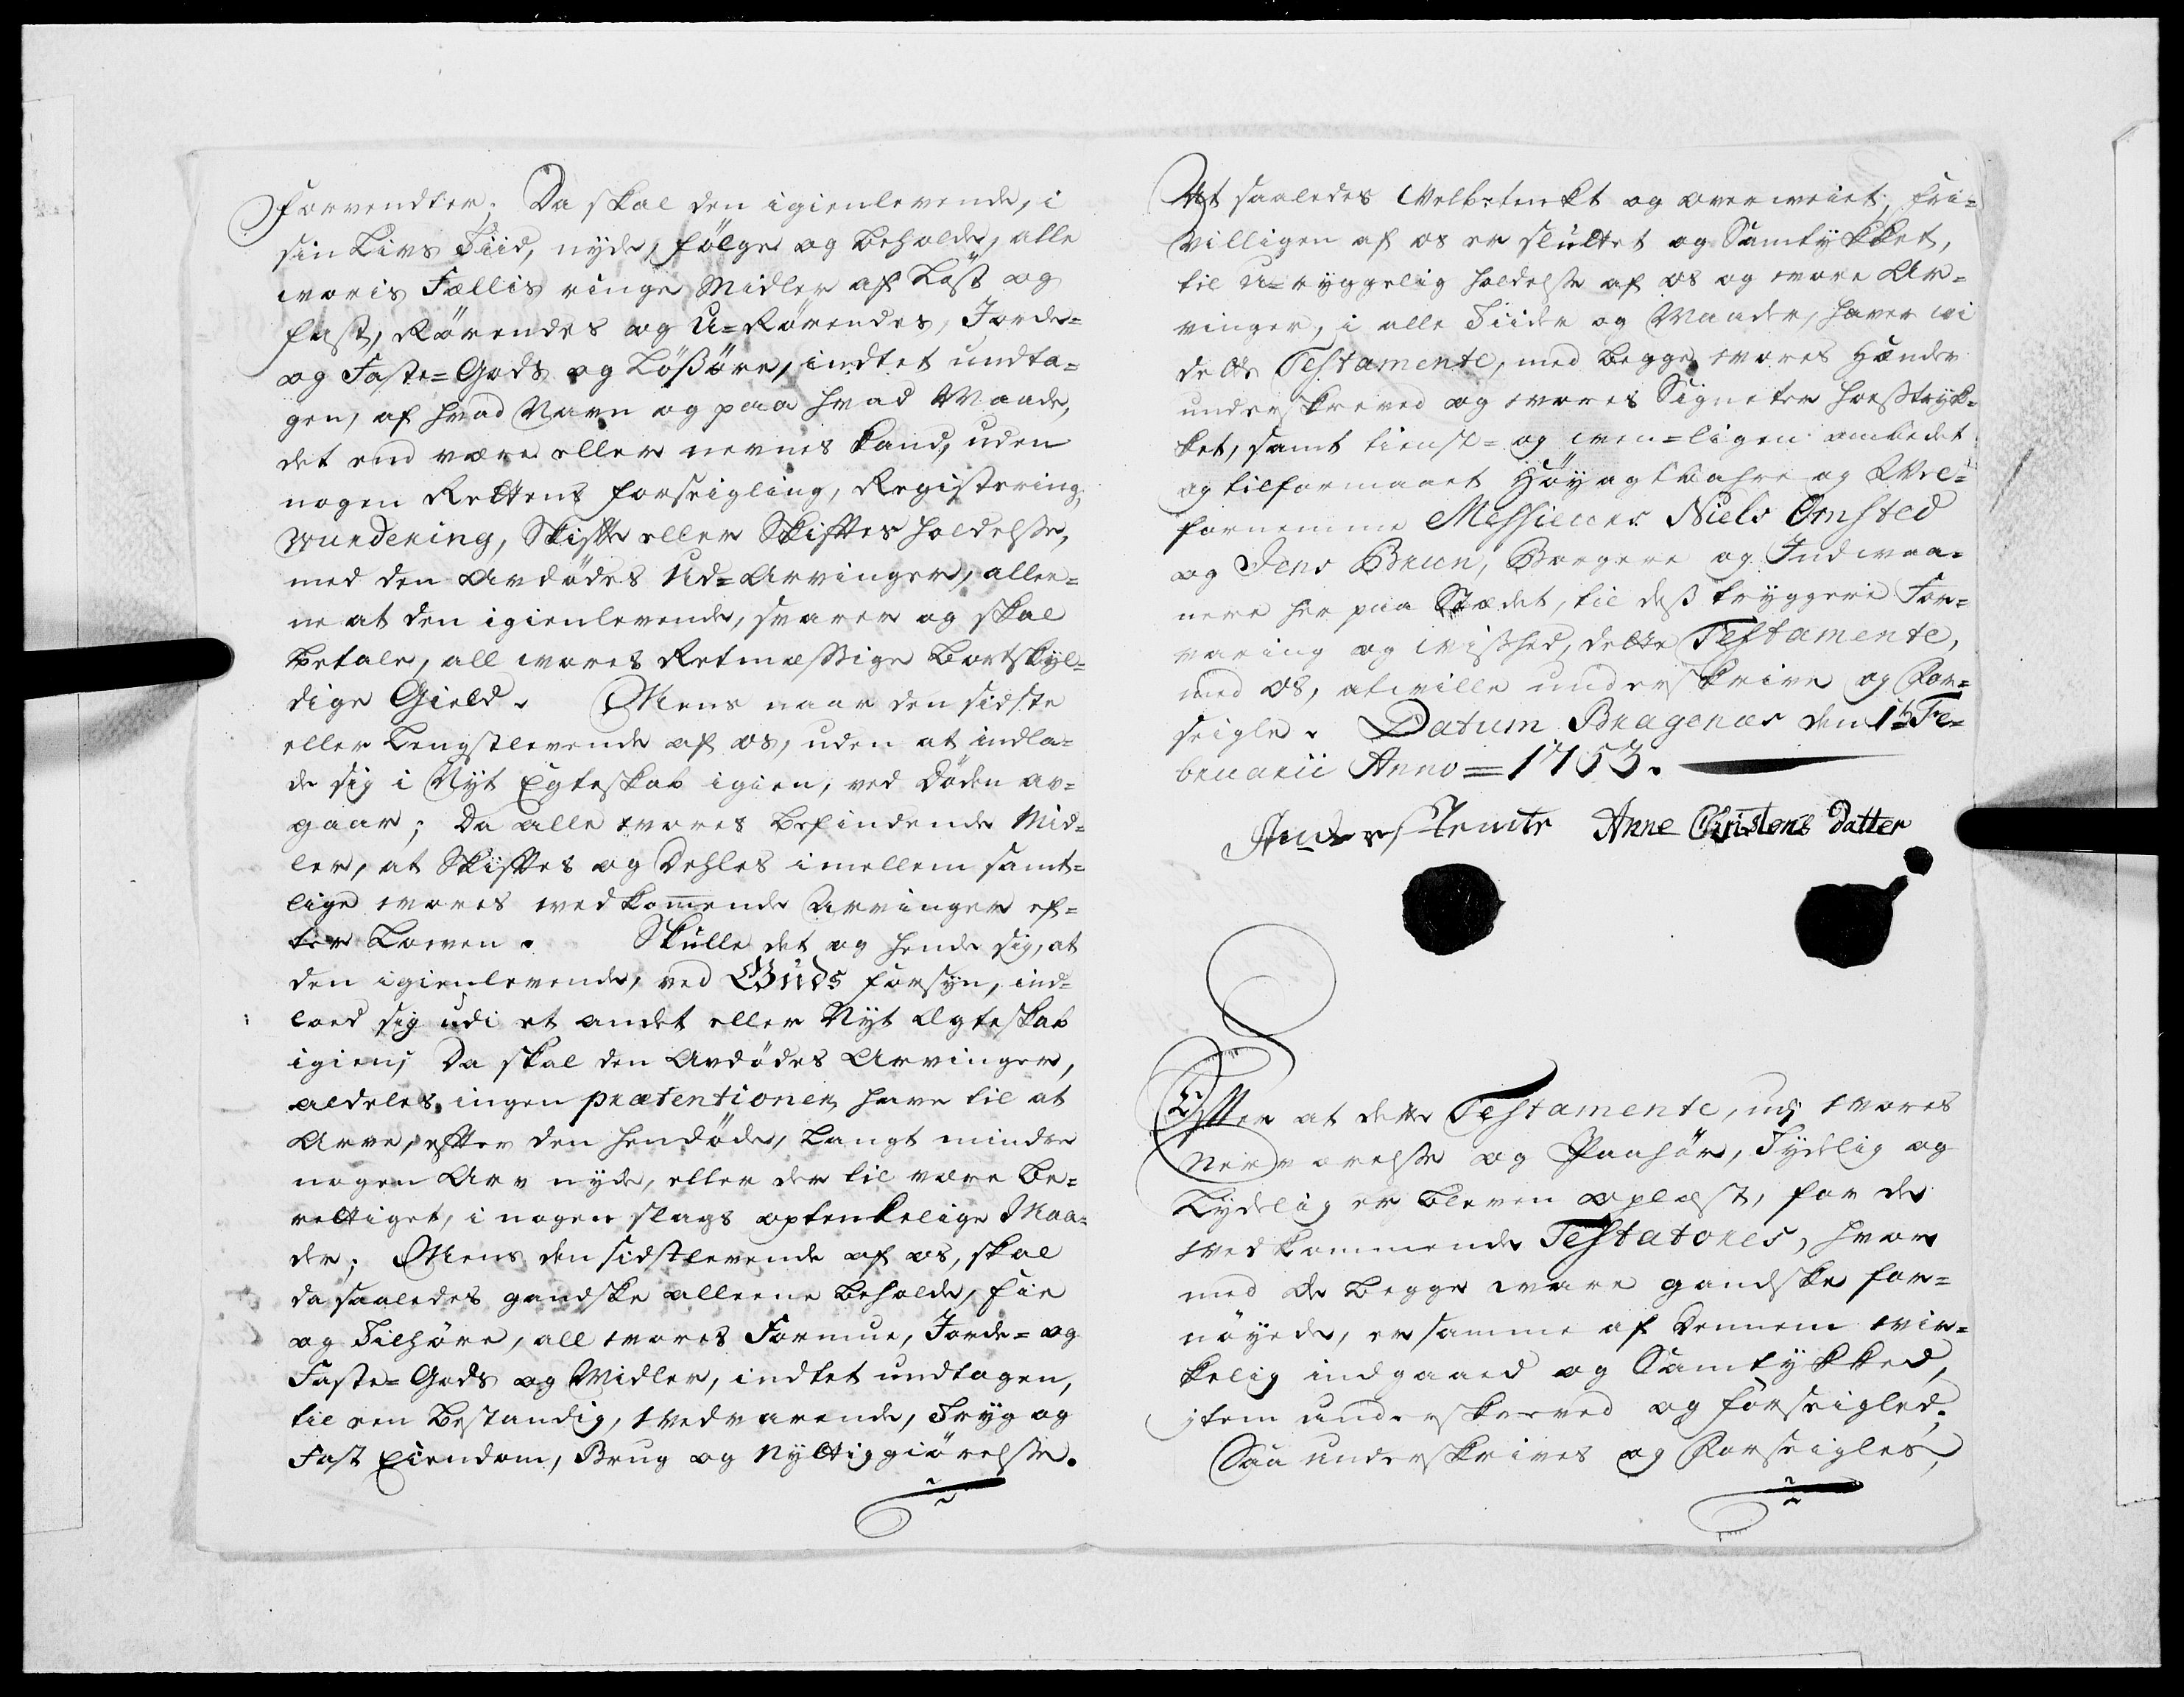 Forvendter; Da skal den igienlevende, i
sin Livs Tiid, nyde, følge og beholde, alle
woris Fællis ringe Midler af Løst og
fast, Rørendes og U=Rørendes, Jorde=
og Faste=Gods og Lößøre, indtet undta=
gen, af hvad Navn og paa hvad Maade,
det end være eller nevnes kand, uden
nogen Rettens forseigling, Registering,
Wurdering, Skifte eller Skiftes holdelse,
med den Avdødes Ud=Arvinger, allee=
ne at den igienlevende, svarer og skal
betale, all wores Retmæssige Bortskyl=
dige Gield. Mens naar den sidste
eller Lengstlevende af os, uden at indla=
de sig i Nyt Egteskab igien, ved Døden av=
gaar; Da alle wores befindende Mid=
ler, at Skiftes og Dehles imellem samt=
lige wores wedkommende Arvinger ef=
ter Lowen. Skulle det og hende sig, at
den igienlevende, ved Guds forsyn, ind=
loed sig udi et andet eller Nyt Ægteskab
igien; Da skal den Avdødes Arvinger,
aldeles, ingen prætentioner, have til at
Arve, efter den hendøde, langt mindre
nogen Arv nyde, eller der til være be=
rettiget, i nogen slags optenkelige Maa=
der; Mens den sidstlevende af os, skal
da saaledes gandske alleene beholde, Eie
og Tilhøre, all wores Formue, Jorde= og
Faste=Gods og Midler, indtet undtagen,
til een bestandig, wedvarende, Tryg og
Fast Eiendom, Brug og Nyttiggiørelse.
At saaledes Welbetenkt og overweiet, fri=
villigen af os er sluttet og Samtykket,
til U=ryggelig holdelse af os og wore Ar=
vinger, i alle Tiider og Maader, haver wi
dette Testamente, med begge wores Hænder
underskreved og wores Signeter hosstryk=
ket, samt tienst= og wen=ligen ombedet
og tilformaaet Høyagtbahre og Wel=
fornemme Messieurs Niels Omsted
og Jens Bruun, Borgere og Indwaa=
nere her paa Stædet, til deß tryggere For=
varing og wißhed, dette Testamente,
med os, at wille underskrive og For=
seigle. Datum Bragenæs den 1te Fe=
bruarii Anno=1753.
Anne Christens Datter
Efter at dette Testamente, udj wores
Nerværelse og Paahør, Tydelig og
Lydelig er bleven oplæst, for de
wedkommende Testatores, hvor
med de begge ware gandske for=
nøyede, er samme af Dennem wir=
kelig indgaaed og Samtykked,
item underskreved og forseigled;
Saa underskrives og Forseigles,